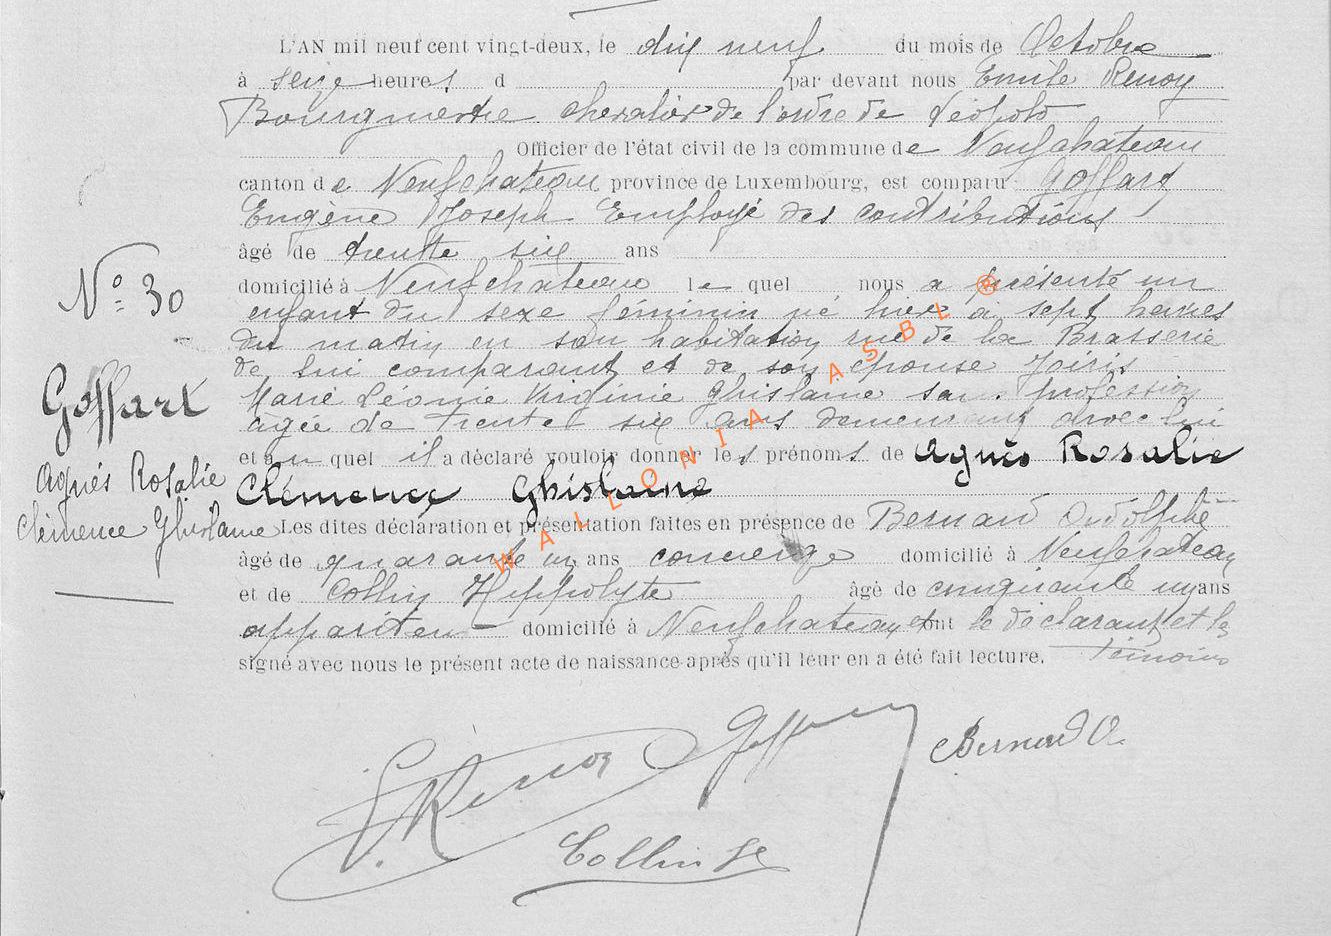 L'AN mil neuf cent vingt-deux, le dix neuf du mois de Octobre
à seize heures d par devant nous Emile Renoy
Bourgmestre chevalier de l'ordre de Léopold
Officier de l'état civil de la commune de Neufchateau
canton de Neufchateau province de Luxembourg, est comparu Goffart
Eugène Joseph Employé des contributions
âgé de trente six ans
domicilié à Neufchateau le quel nous a présenté un
enfant du sexe féminin né hier à sept heures
du matin en son habitation rue de la Brasserie
de lui comparant et de son épouse Joiris
Marie Léonie Virginie Ghislaine sans profession
agée de trente six ans demeurant avec lui
et au quel il a déclaré vouloir donner les prénoms de Agnès Rosalie
Clémence Ghislaine
Les dites déclaration et présentation faites en présence de Bernard
âgé de quarante un ans concierge domicilié à Neufchateau
et de Collin Hippolyte âgé de cinquante un ans
appariteur domicilié à Neufchateau et ont le déclarant et les
signé avec nous le présent acte de naissance après qu'il leur en a été fait lecture. témoins
N° 30
Goffart
Agnès Rosalie
Clémence Ghislaine
WALLONIA ASBL ®
E. Renoy
Goffart
Bernard O.
Collin